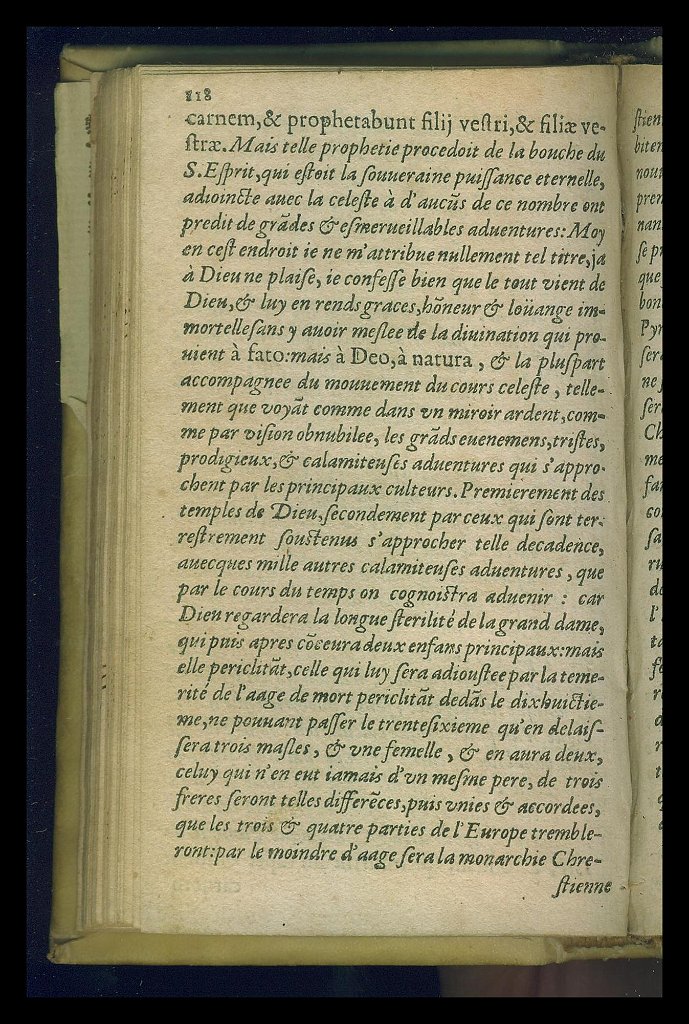 118
carnem,& prophetabunt filij veſtri,& filiæ ve-
ſtræ. Mais telle prophetie procedoit de la bouche du
S. Eſprit,qui eſtoit la ſouueraine puiſſance eternelle,
adioincte auec la celeſte à d'aucũs de ce nombre ont
predit de grãdes & eſmerueillables aduentures: Moy
en ceſt endroit ie ne m'attribue nullement tel titre,ja
à Dieu ne plaiſe, ie confeſſe bien que le tout vient de
Dieu,& luy en rends graces,hõneur & loüange im-
mortelle ſans y auoir meſlee de la diuination qui pro-
uient à fato:mais à Deo,à natura , & la pluſpart
accompagnee du mouuement du cours celeſte , telle-
ment que voyãt comme dans vn miroir ardent,com-
me par viſion obnubilee, les grãds euenemens,triſtes,
prodigieux,& calamiteuſes aduentures qui s'appro-
chent par les principaux culteurs. Premierement des
temples de Dieu,ſecondement par ceux qui ſont ter-
reſtrement ſouſtenus s'approcher telle decadence,
auecques mille autres calamiteuſes aduentures , que
par le cours du temps on cognoiſtra aduenir : car
Dieu regardera la longue ſterilité de la grand dame,
qui puis apres cõceura deux enfans principaux:mais
elle periclitãt,celle qui luy ſera adiouſtee par la teme-
rité de l'aage de mort periclitãt dedãs le dixhuictie-
me,ne pouuant paſſer le trenteſixieme qu'en delaiſ-
ſera trois maſles , & vne femelle , & en aura deux,
celuy qui n'en eut iamais d'vn meſme pere, de trois
freres ſeront telles differẽces,puis vnies & accordees,
que les trois & quatre parties de l'Europe tremble-
ront:par le moindre d'aage ſera la monarchie Chre-
ſtienne
ſtien
biten
nou
pren
nan
ſe p
que
bon
Pyr
ſer
ne
ſer
Ch
me
fa
co
ſa
ru
d
l'